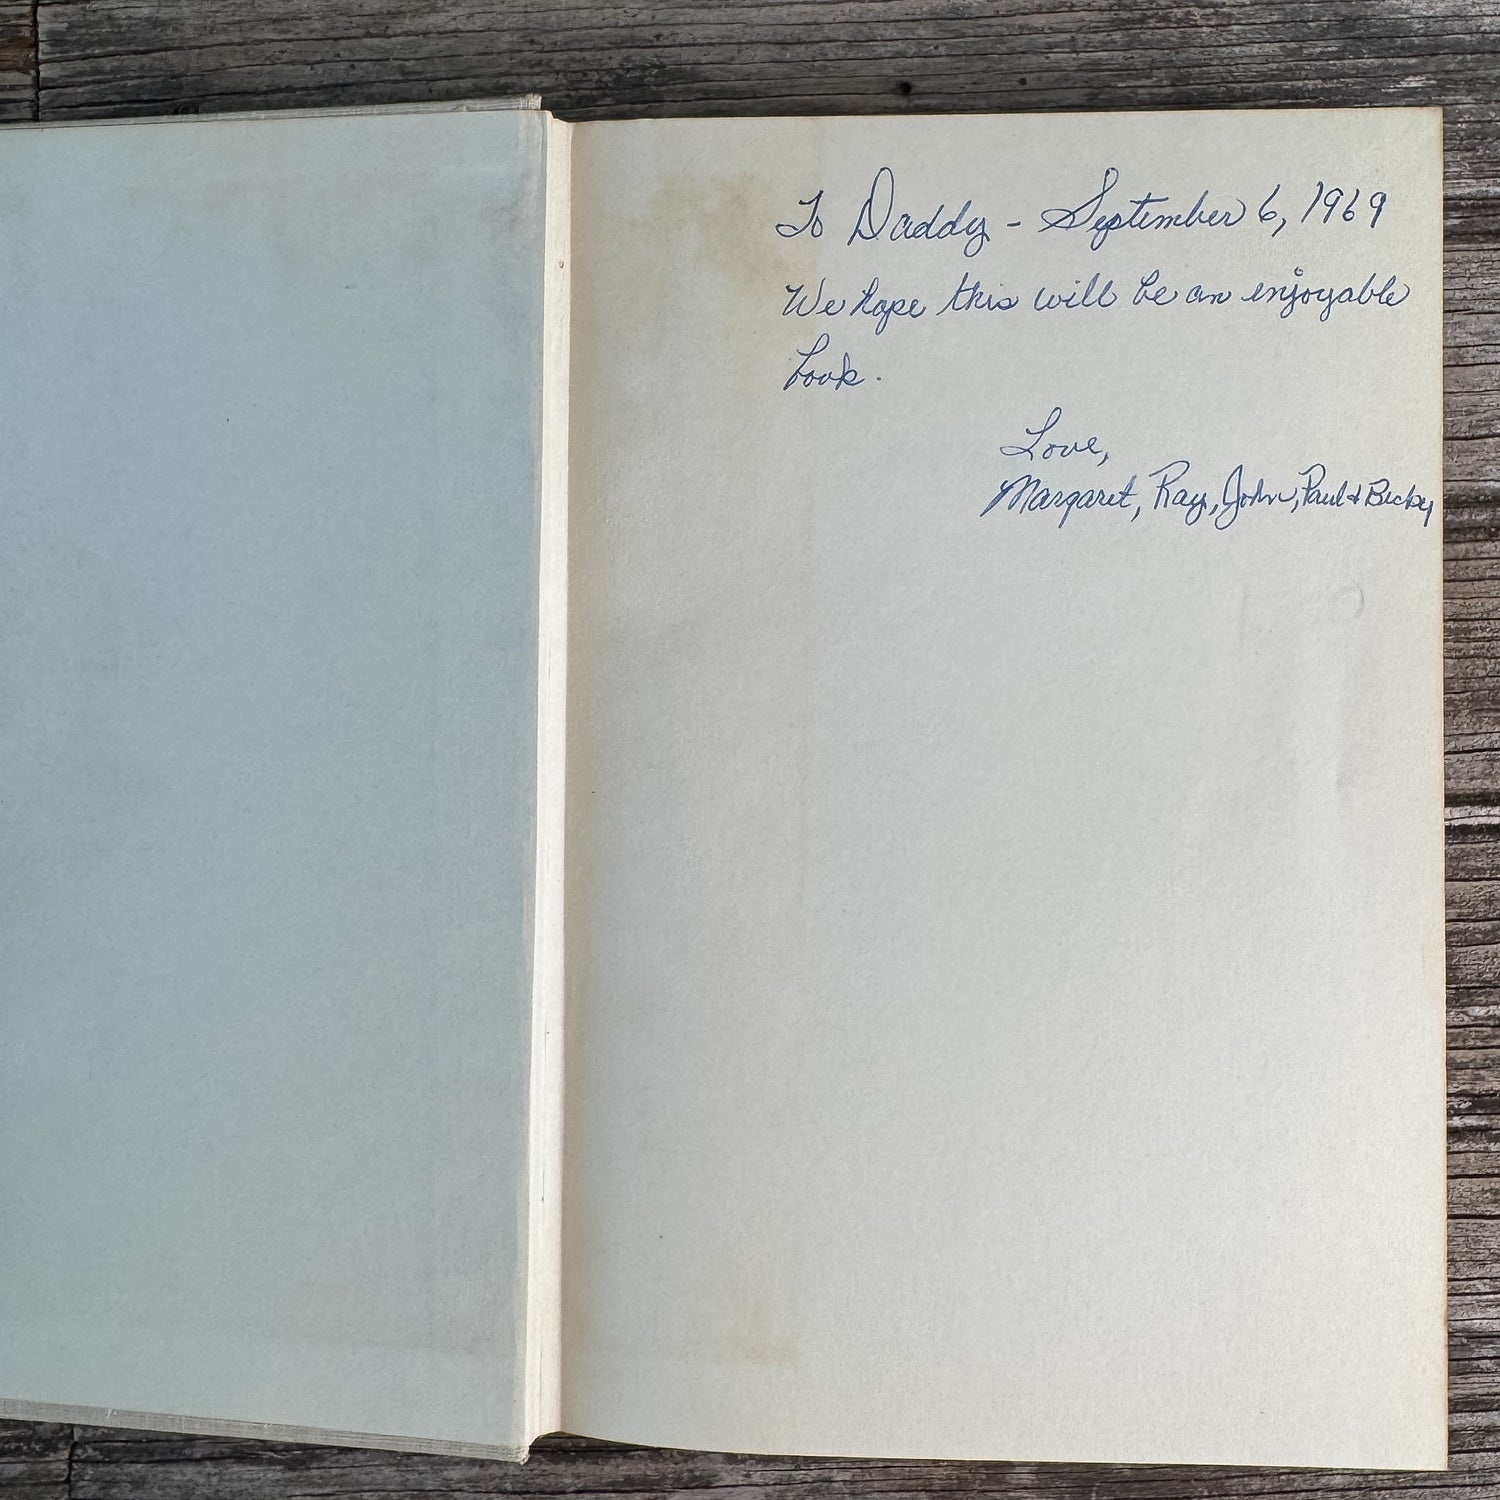 To Daddy - September 6, 1969
We hope this will be an enjoyable
book.
Love,
Margaret, Ray, John, Paul & Becky